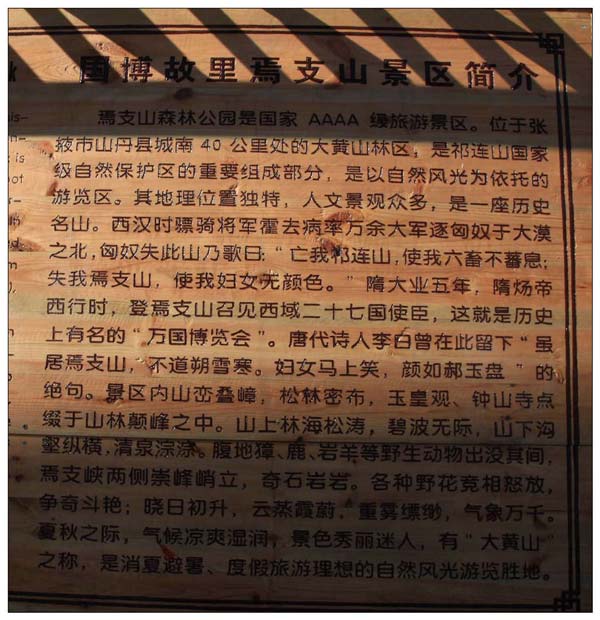 国博故里焉支山景区简介
焉支山森林公园是国家 AAAA 级旅游景区。位于张
掖市山丹县城南 40 公里处的大黄山林区，是祁连山国家
级自然保护区的重要组成部分，是以自然风光为依托的
游览区。其地理位置独特，人文景观众多，是一座历史
名山。西汉时骠骑将军霍去病率万余大军逐匈奴于大漠
之北，匈奴失此山乃歌曰：“亡我祁连山，使我六畜不蕃息；
失我焉支山，使我妇女无颜色。”隋大业五年，隋炀帝
西行时，登焉支山召见西域二十七国使臣，这就是历史
上有名的“万国博览会”。唐代诗人李白曾在此留下“虽
居焉支山，不道朔雪寒。妇女马上笑，颜如赪玉盘”的
绝句。景区内山峦叠嶂，松林密布，玉皇观、钟山寺点
缀于山林颠峰之中。山上林海松涛，碧波无际，山下沟
壑纵横，清泉淙淙。腹地獐、鹿、岩羊等野生动物出没其间，
焉支峡两侧崇峰峭立，奇石岩岩。各种野花竞相怒放，
争奇斗艳；晓日初升，云蒸霞蔚，重雾缥缈，气象万千。
夏秋之际，气候凉爽湿润，景色秀丽迷人，有“大黄山”
之称，是消夏避暑、度假旅游理想的自然风光游览胜地。